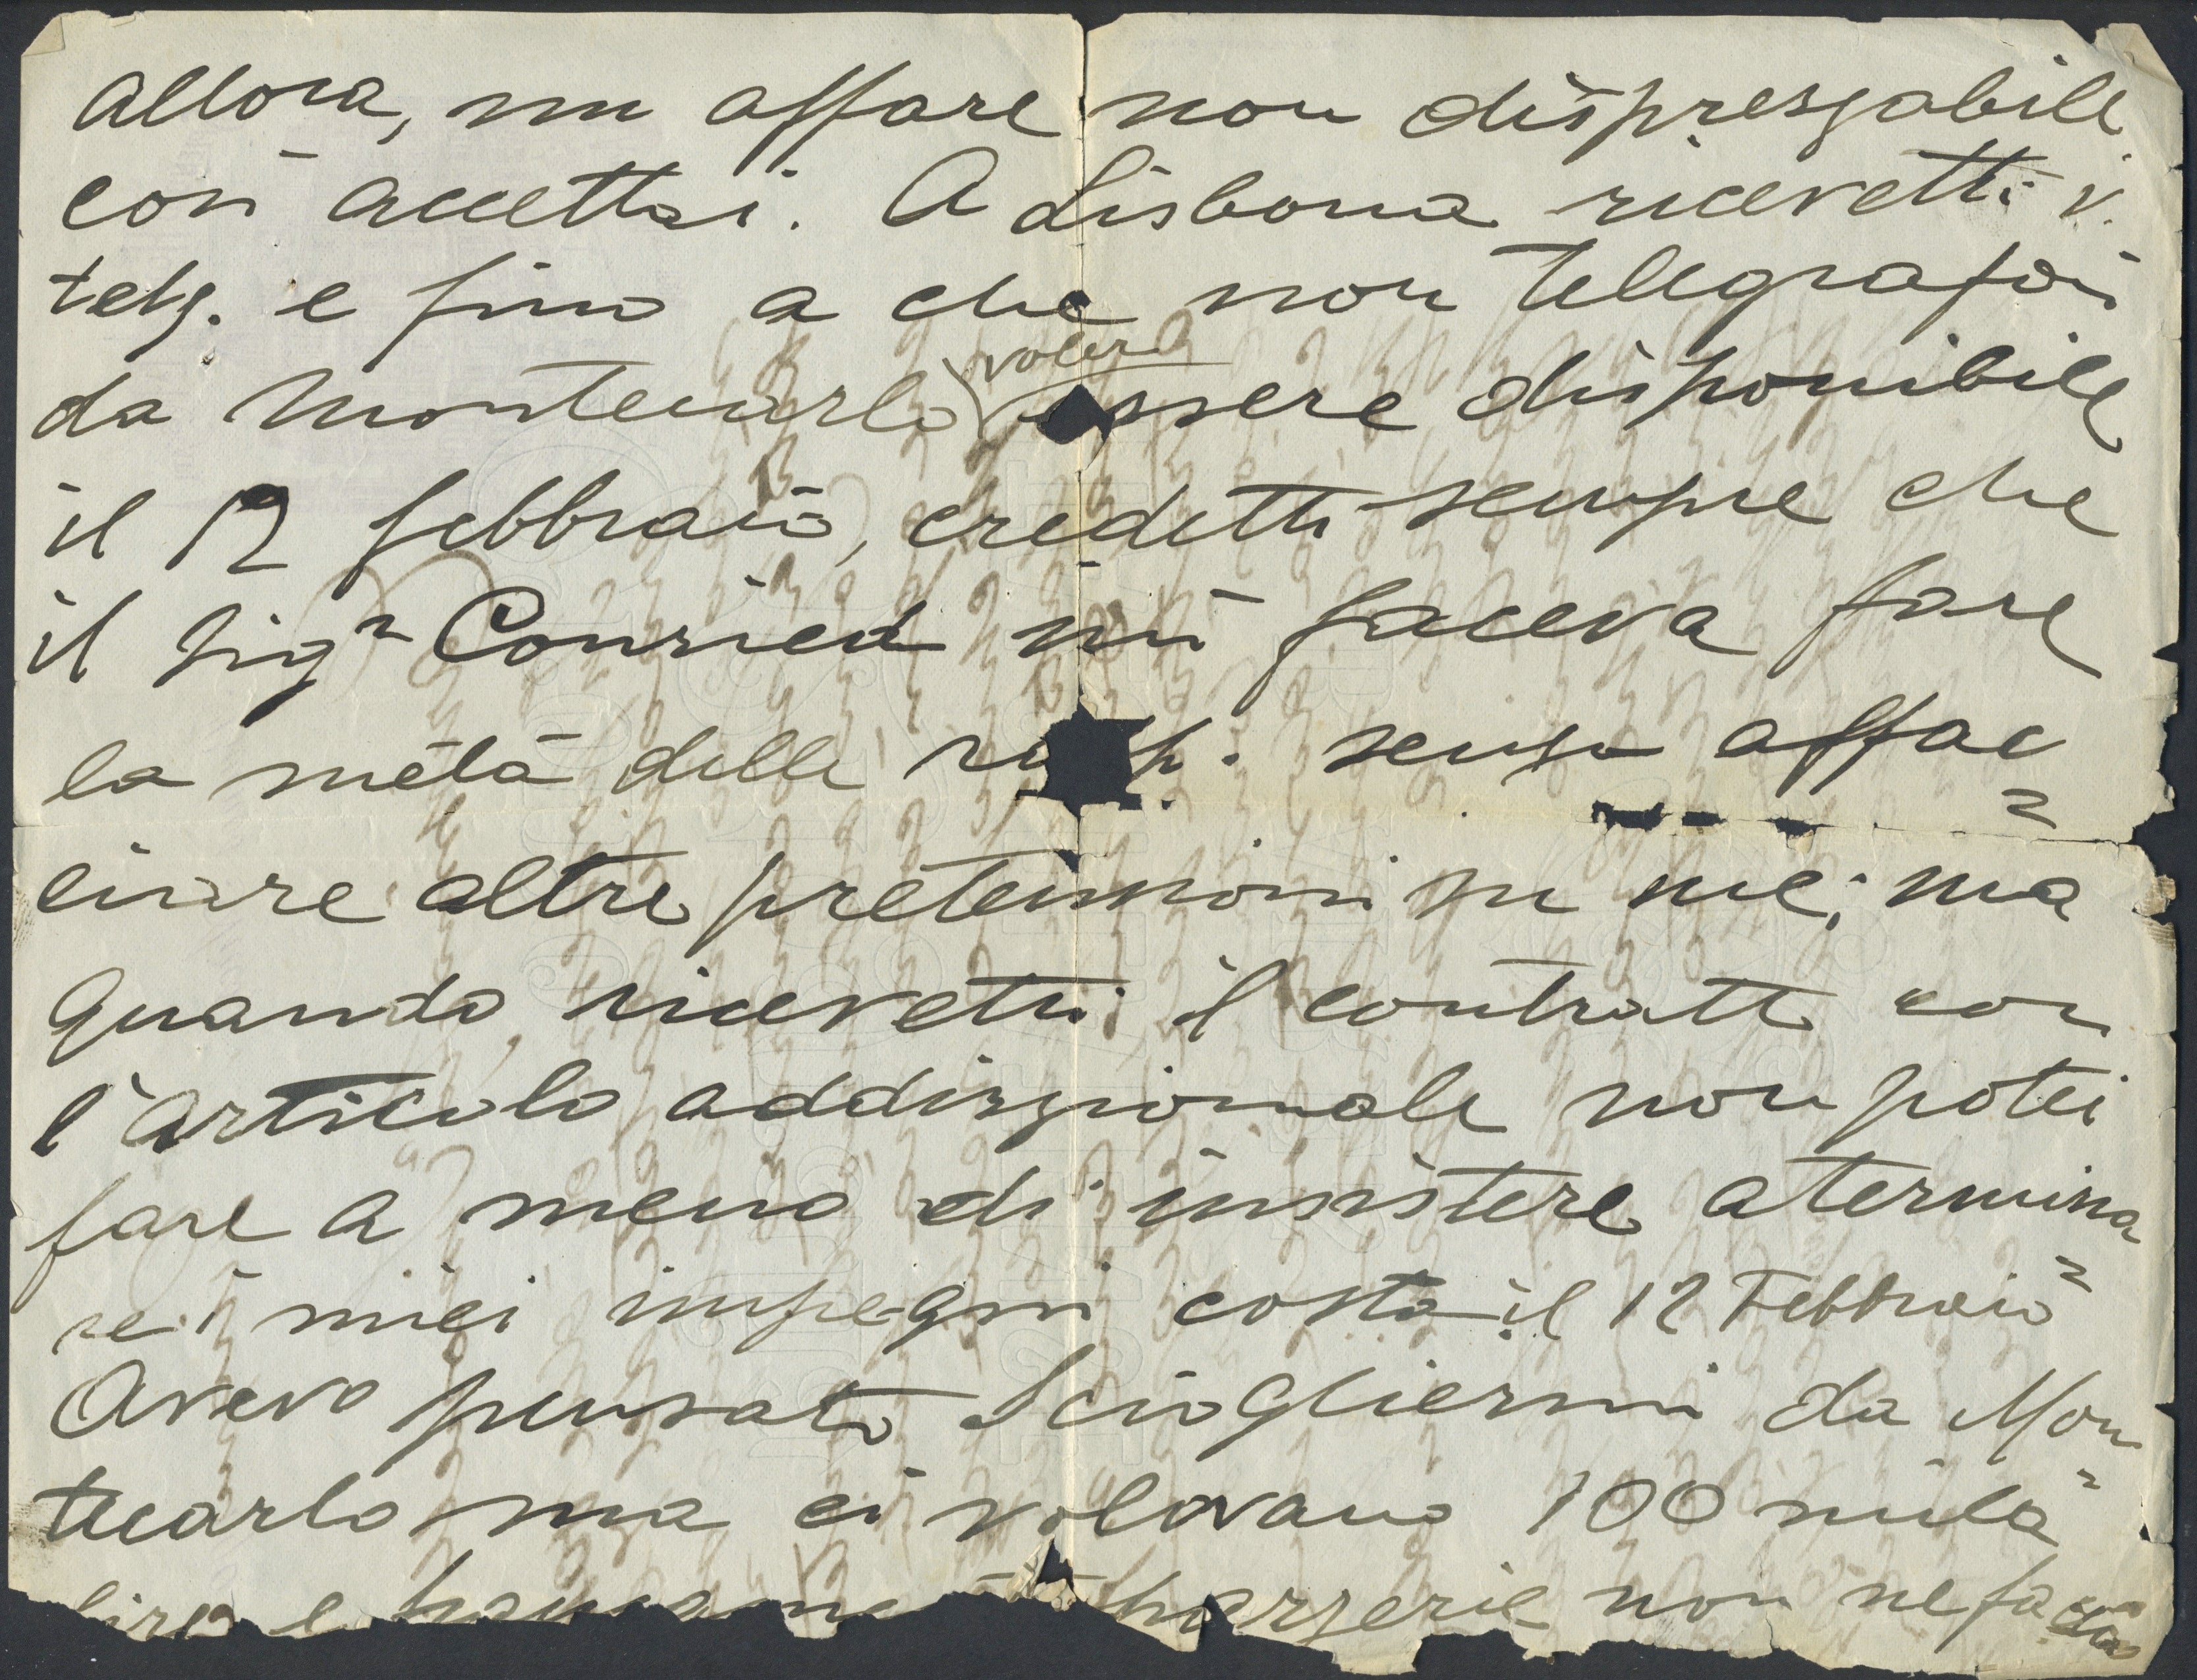 allora, un affare non dispreszabile
così accettai. A Lisbona ricevetti v.
telg. e fino a che non telegrafai
da Montecarlo voler essere disponibile
il 12 febbraio, credetti sempre che
il Sigr Conried mi faceva fare
la metà delle senza affac=
ciare altre pretensioni su me; ma
quando ricevetti il contratto con
l'articolo addiszionale non potei
fare a meno di insistere a termina=
re i miei impegni costà il 12 Febbraio
Avevo pensato Sciogliermi da Mon=
tecarlo ma ci volevano 100 mila
lire e non ne faccio